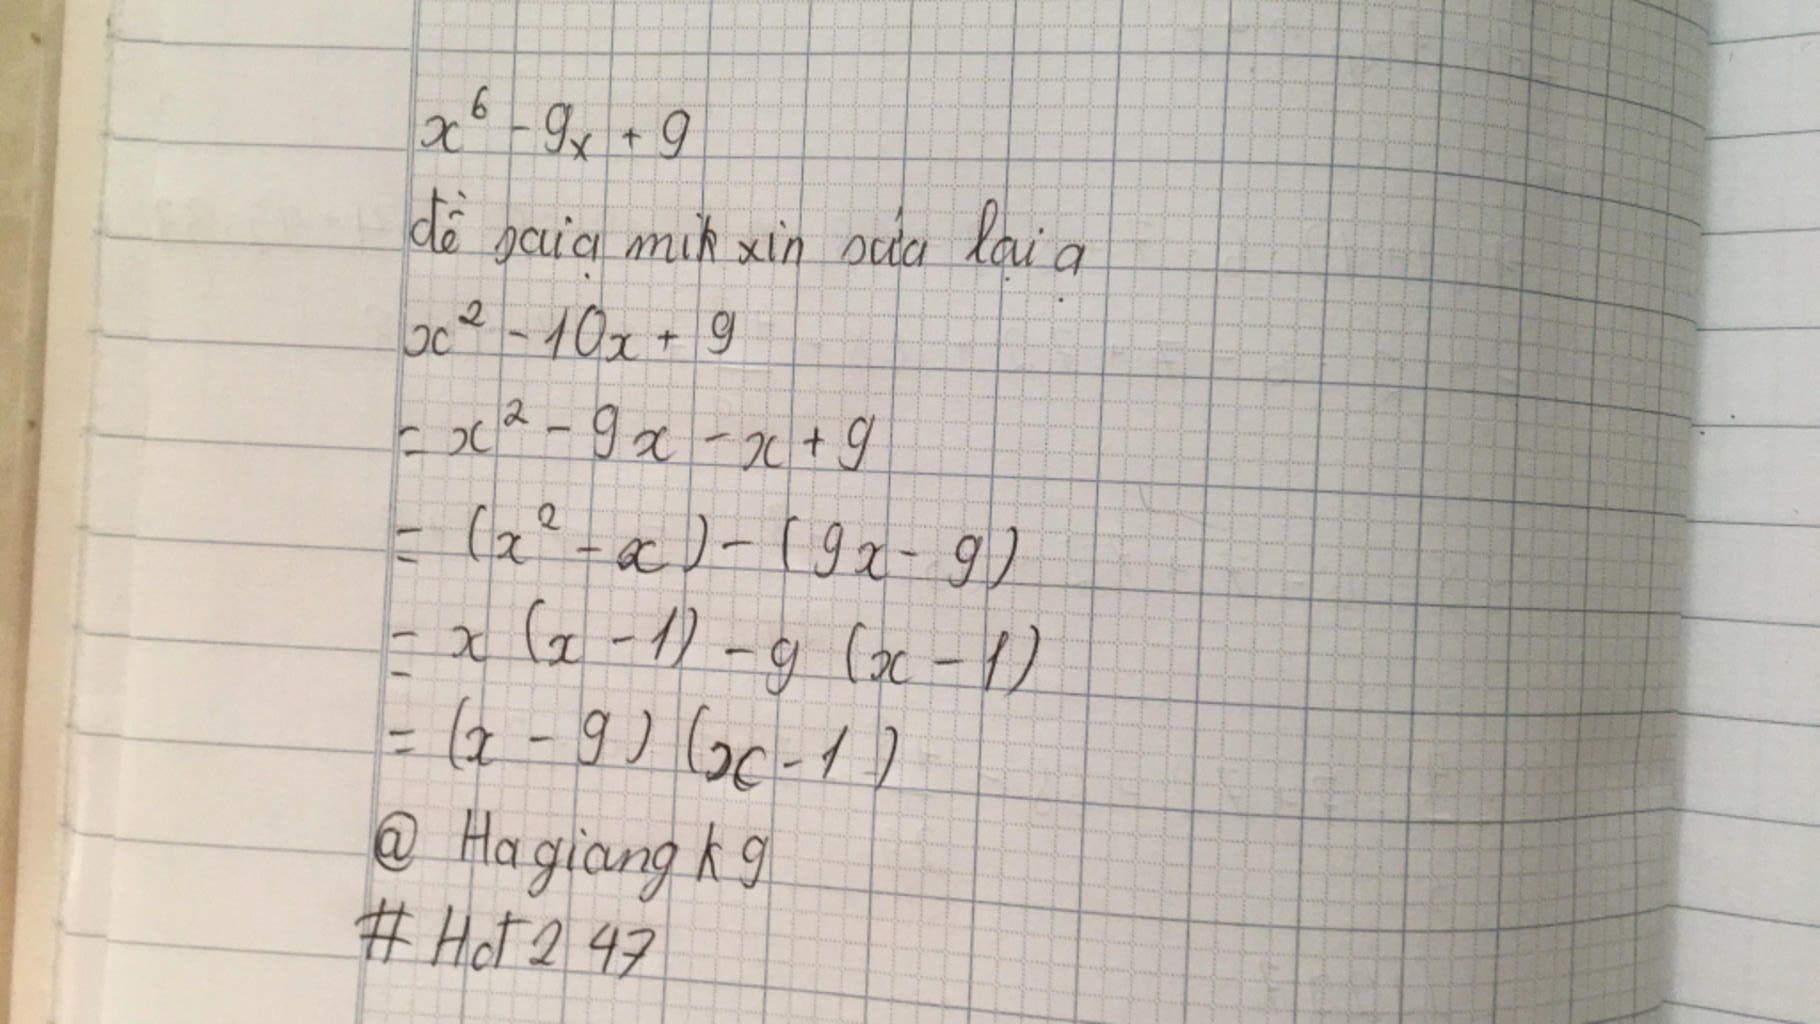 x⁶ - 9x + 9
đề saiạ mik xin sửa lại ạ
x² - 10x + 9
= x² - 9x - x + 9
= (x² - x) - (9x - 9)
= x (x - 1) - 9 (x - 1)
= (x - 9) (x - 1)
@ Hagiang k9
# Hđt 2 47